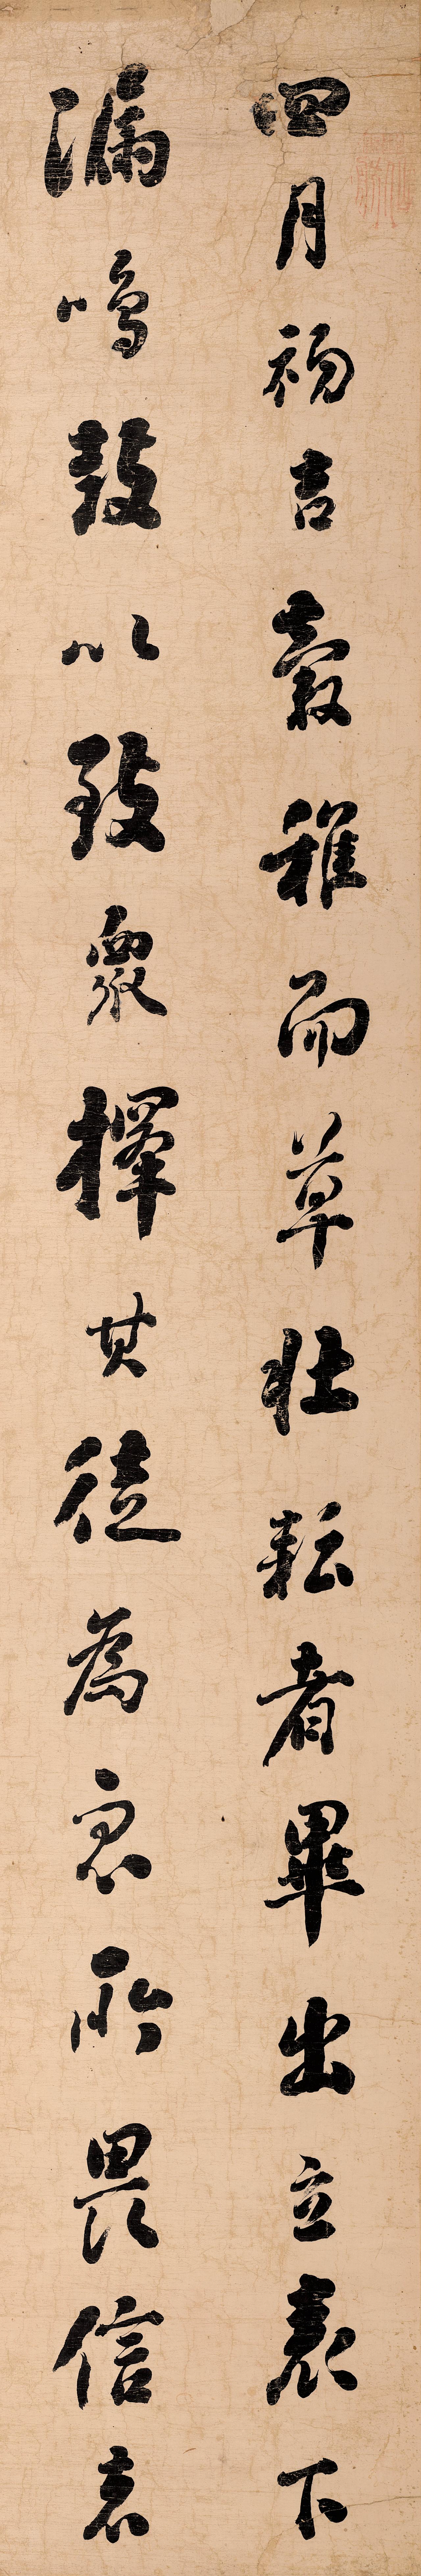 四月初吉穀稚而草壯耘者畢出立表下
漏鳴鼓以致衆擇其徒為衆所畏信者